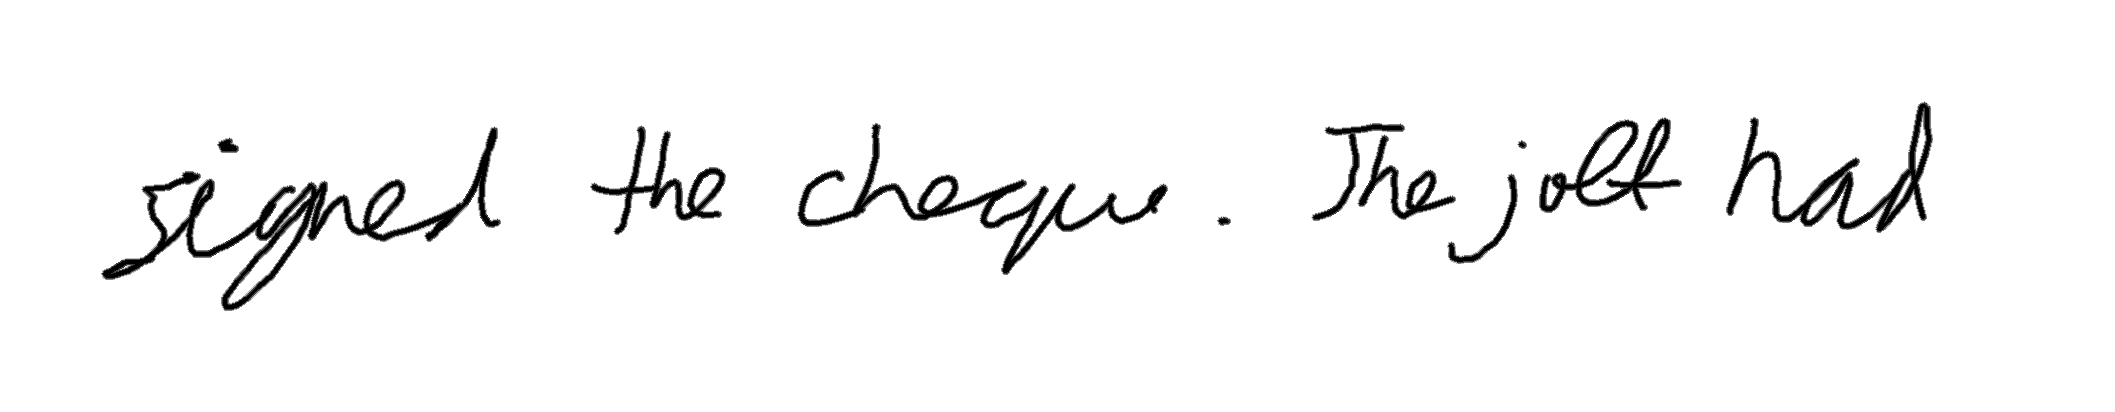 signed the cheque. The jolt had